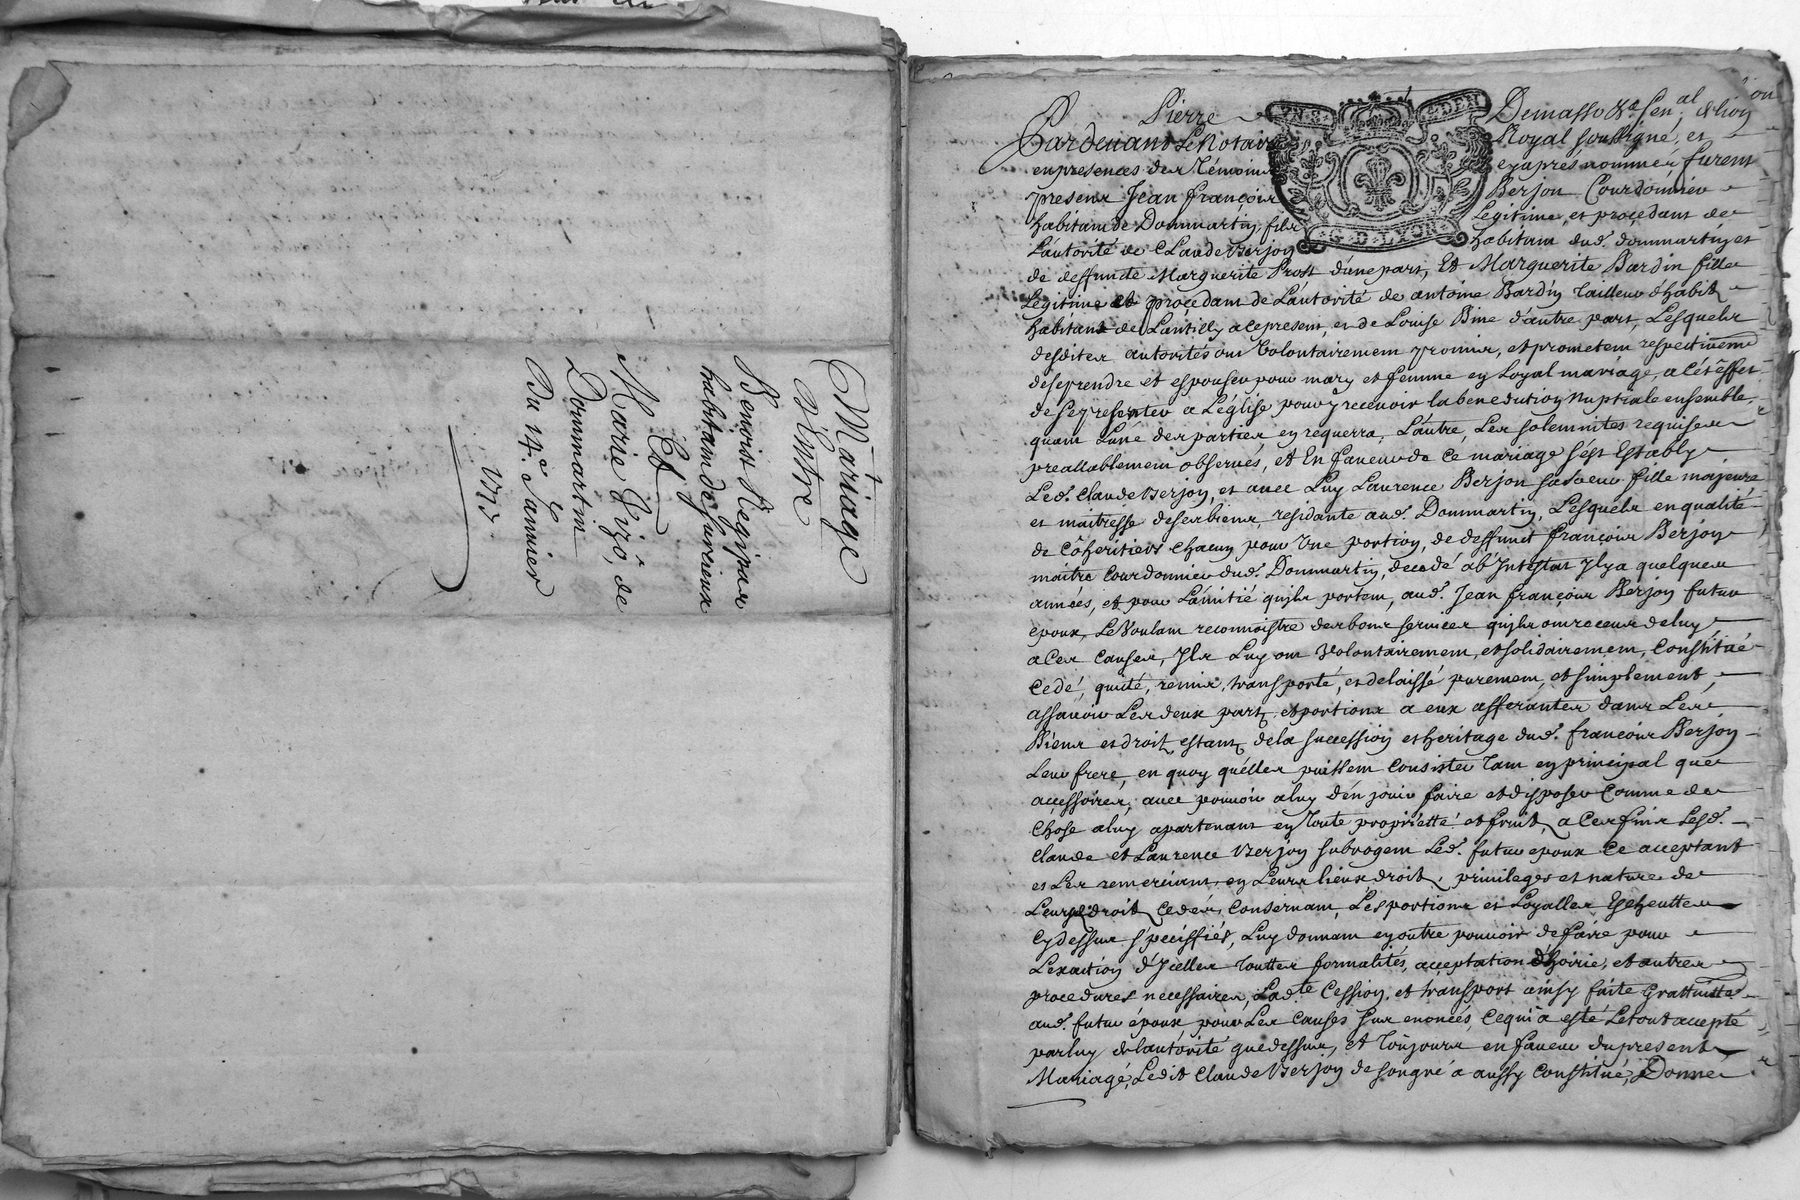 Mariage
d'entre
Benoist Regipas
habitant de Jurcieux
Et
Marie Gizo, de
Dommartin
Du 14.e Janvier
1713
Pierre Demasso Esr. Senal. de Lion
Pardevant Le Notaire Royal soussigné, et
en presences des Témoins cy aprés nommés furent
presens Jean François Berjon Courdonnier
habitant de Dommartin, fils Legitime, et proçedant de
L'autorité de Claude Berjon habitant dud. dommartin et
de deffuncte Marguerite Prost d'une part, Et Marguerite Bardin fille
Legitime et proçedant de L'autorité de antoine Bardin Tailleur d'habits
habitant de Lantilly a ce present, et de Louise Bine d'autre part, Lesquels
desdites autorités ont Volontairement promis, et prometent respectivemt
de se prendre et espouser pour mary et femme en Loyal mariage, a cét éffet
de se presenter a L'église pour y recevoir la benediction Nuptiale ensemble,
quant L'une des parties en requerra, L'autre, Les solemnités requises
preallablement observés, Et En faveur de Ce mariage s'ést Estably
Led. Claude Berjon, et avec Luy Laurence Berjon sa sœur fille majeure
et maitresse de ses biens, residante aud. Dommartin, Lesquels en qualité
de Côheritiers chacun pour Une portion, de deffunct François Berjon
maitre Courdonnier dud. Dommartin, decedé ab Intestat Il y a quelques
années, et pour L'amitié qu'ils portent, aud. Jean François Berjon futur
epoux, Le Voulant reconnoistre des bons services qu'ils ont receus de luy,
a Ces Causes, Ils Luy ont Volontairement, et solidairement, Constitué
Cedé, quité, remis, transporté, et delaissé purement, et simplement,
assavoir Les deux parts, et portions a eux afferantes dans Les
Biens et droits, estants, de la succession et heritage dud. François Berjon
Leur frere, en quoy qu'elles puissent Consister Tant en principal que
accessoires, avec pouvoir a luy d'en jouir faire et disposer Comme de
Chose a luy apartenant en Toute proprietté et fruits, a Ces fins Lesd.
Claude et Laurence Berjon subrogent Led. futur epoux Ce acceptant
et Les remerciant, en Leurs lieux droits, privileges et nature de
Leurs droits cedés, Conservant, Les portions et Loyalles Escheuttes
Cy dessus s'pecifiés, Luy donnant en outre pouvoir de faire pour
L'exaction d'Icelles Touttes formalités, acceptation d'hoirie, et autres
procedures necessaires, Lad.te Cession, et transport ainsy faite Grattuitte
aud. futur époux pour Les Causes sus enoncés Ce qui a esté Le tout accepté
par luy de l'autorité que dessus, Et Toûjours en faveur du present
Mariagé, Ledit Claude Berjon de son gré a aussy Constitué, Donne